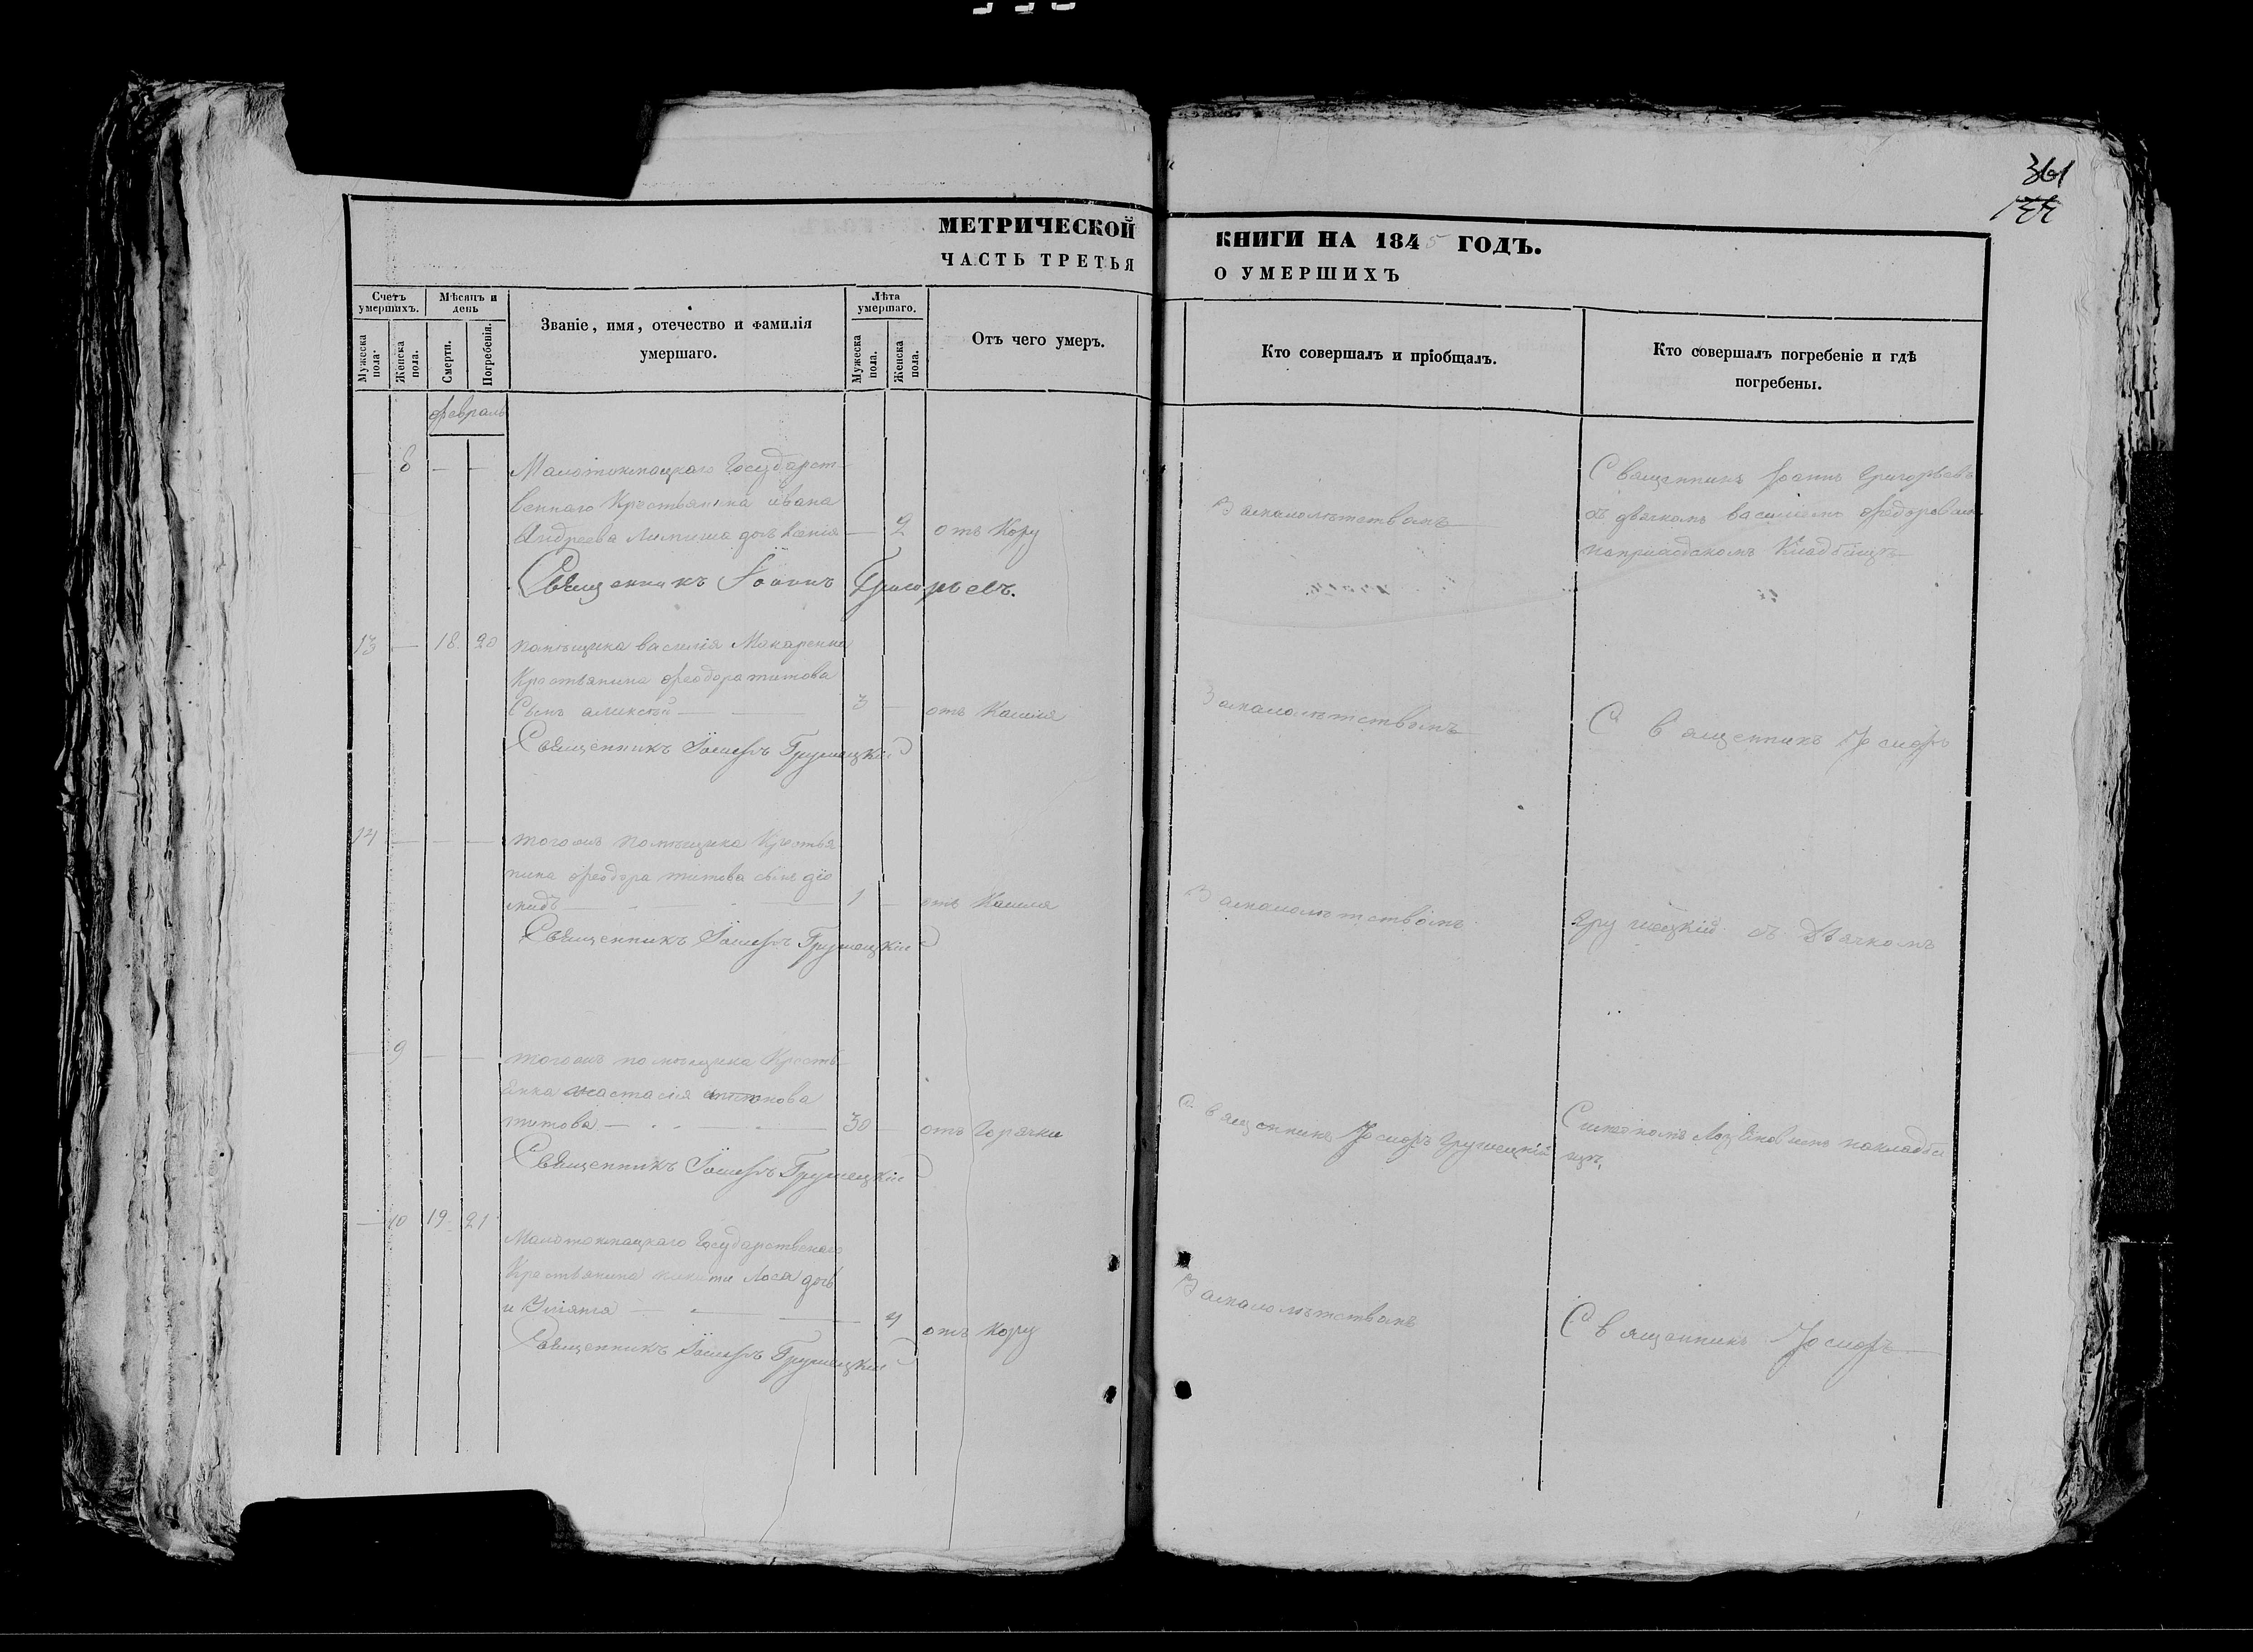 361
МЕТРИЧЕСКОЙ КНИГИ НА 1845 ГОДЪ.
ЧАСТЬ ТРЕТЬЯ О УМЕРШИХЪ
Счетъ умершихъ.
Мѣсяцъ и день
Званіе, имя, отечество и фамилія умершаго.
Лѣта умершаго.
Отъ чего умеръ.
Кто совершалъ и пріобщалъ.
Кто совершалъ погребеніе и гдѣ погребены.
Мужеска пола.
Женска пола.
Смерти.
Погребенія.
Мужеска пола.
Женска пола.
февраль
— 8 — — Малотокмацкаго Государст-
веннаго Крестьянина ивана
Андреева дочь Ксенія — 2 отъ Кору
За малолѣтствомъ
Священникъ Іоаннъ Григорьевъ
съ дьячкомъ василіемъ
Кладбищѣ
Священникъ Іоаннъ Григорьевъ.
13 — 18 20 помѣщика василія Макаренка
Крестьянина феодора титова
Сынъ алексѣй — 3 — отъ Кашля
За малолѣтствомъ
Священникъ Іосифъ
Священникъ Іосифъ Грушецкій
14 — — — тогожъ помѣщика Крестья
нина феодора титова сынъ діо
мидъ — 1 — отъ Кашля
За малолѣтствомъ
Грушецкій съ Дьячкомъ
Священникъ Іосифъ Грушецкій
— 9 — — тогожъ помѣщика Кресть
янка настасія
титова — 30 — отъ Горячки
Священникъ Іосифъ Грушецкій
Священникъ Іосифъ Грушецкій
— 10 19 21
Малотокмацкаго Государственаго
Крестьянина никиты Лося дочь
и Уліянія — 4 отъ Кору
За малолѣтствомъ
Священникъ Іосифъ
Священникъ Іосифъ Грушецкій